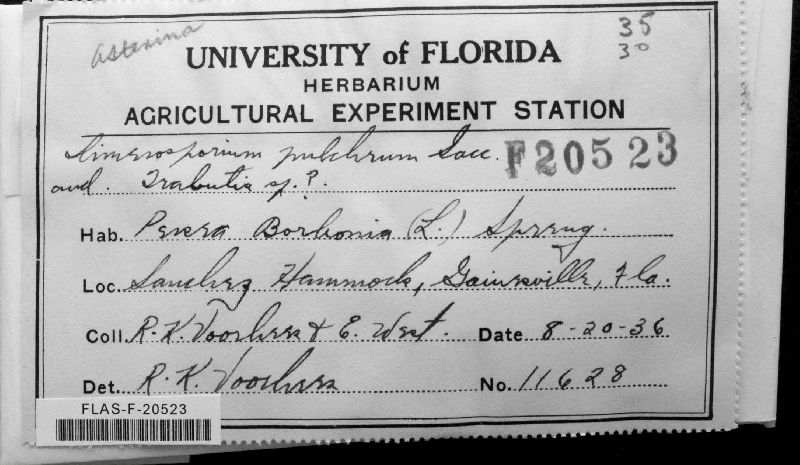 Asterina
35
30
UNIVERSITY of FLORIDA
HERBARIUM
AGRICULTURAL EXPERIMENT STATION
Dimerosporium pulchrum Sacc.
F20523
and. Trabutia sp.?
Hab. Persea Borbonia (L.) Spreng.
Loc. Sanchez Hammock, Gainesville, Fla.
Coll. R.K. Voorhees & E. West. Date 8-20-36
Det. R.K. Voorhees No. 11628
FLAS-F-20523